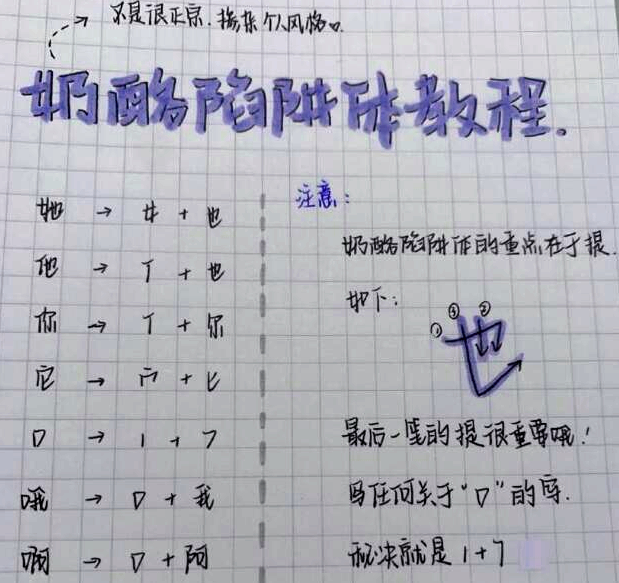 不是很正宗.掺杂个人风格.
奶酪陷阱体教程.
她 → 女 + 也
他 → 亻 + 也
你 → 亻 + 尔
它 → 宀 + 匕
口 → 1 + 7
哦 → 口 + 我
啊 → 口 + 阿
注意:
奶酪陷阱体的重点在于提.
如下:
① ③ ②
也
最后一笔的提很重要哦!
写任何关于“口”的字.
秘诀就是 1+7